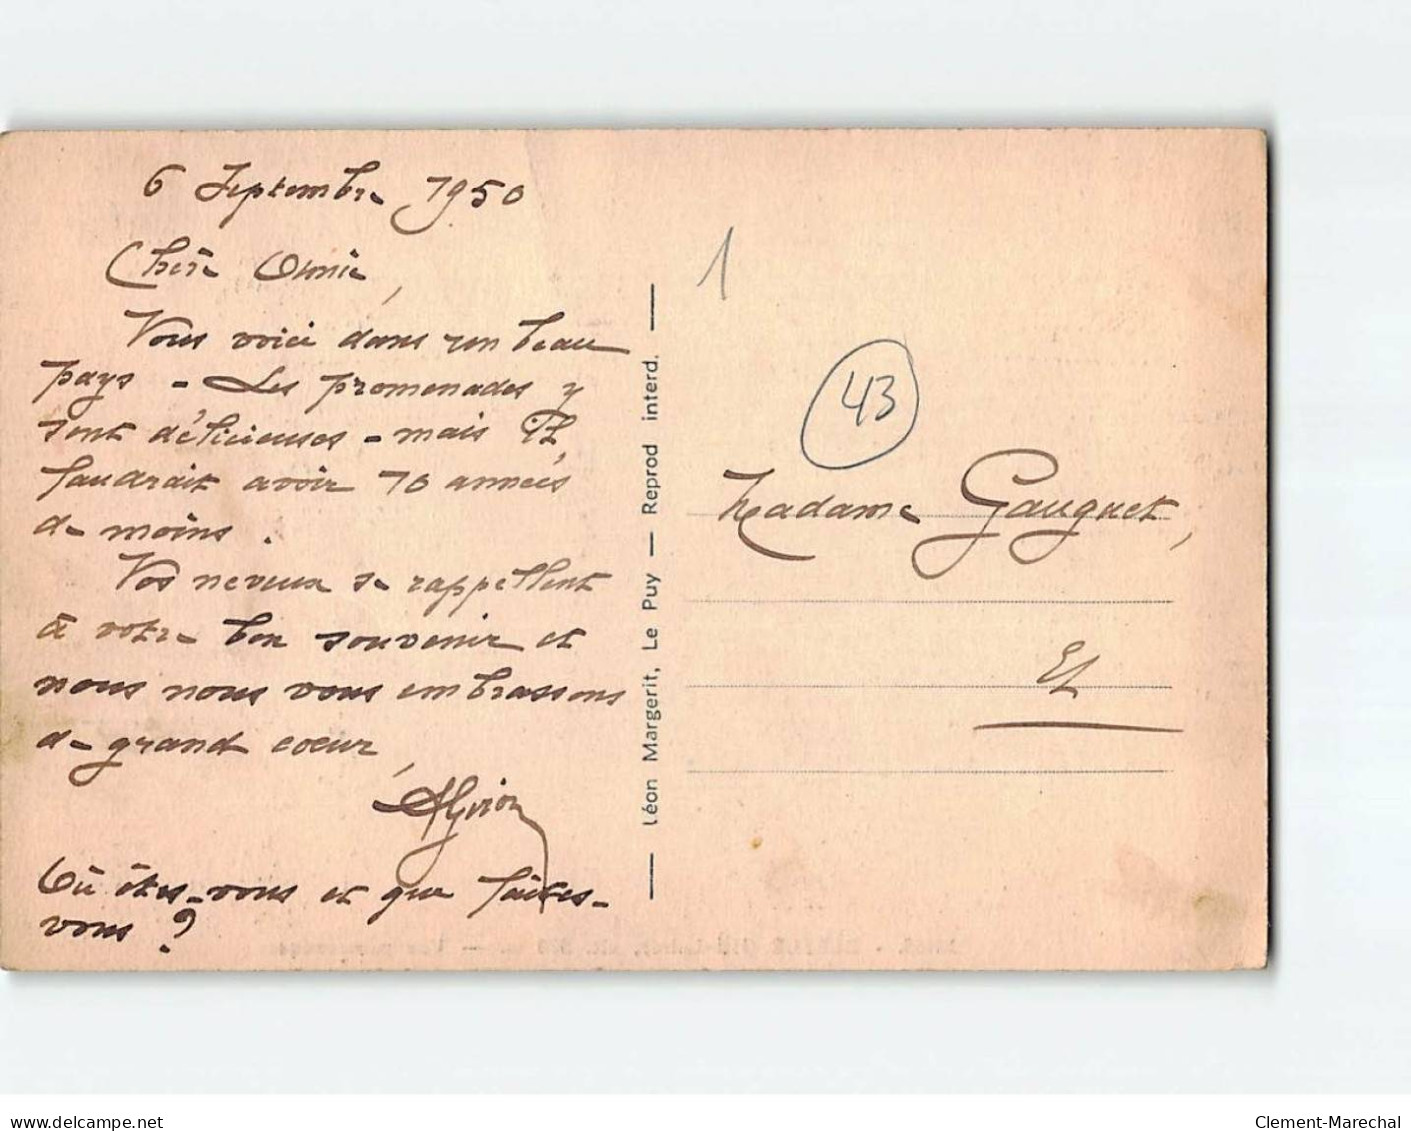 6 Septembre 1950
Chère Amie,
Vous voici dans un beau
pays - Les promenades y
sont délicieuses - mais il
faudrait avoir 70 années
de moins.
Vos neveux se rappellent
à votre bon souvenir et
nous nous vous embrassons
de grand coeur,
Où êtes-vous et que faites-
vous ?
Léon Margerit, Le Puy — Reprod interd.
1
43
Madame Gauguet,
EL
www.delcampe.net
Clement-Marechal